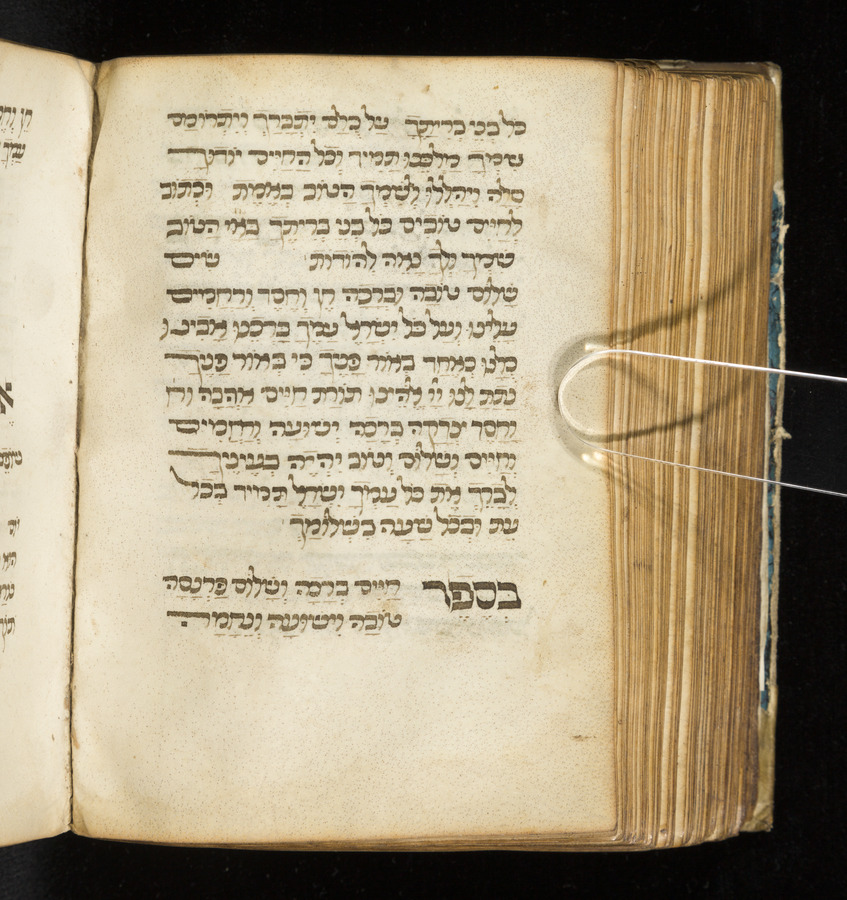 כל בני בריתך על כולם יתברך ויתרומם
שמך מלכנו תמיד וכל החיים יודוך
סלה ויהללו לשמך הטוב באמת וכתוב
לחיים טובים כל בני בריתך באי הטוב
שמך ולך נאה להודות שים
שלום טובה וברכה חן וחסד ורחמים
עלינו ועל כל ישראל עמך ברכנו אבינו
כלנו כאחד באור פניך כי באור פניך
נתת לנו יי אלהינו תורת חיים אהבה
וחסד וצדקה ברכה ישועה ורחמים
וחיים ושלום וטוב יהיה בעיניך
לברך את כל עמך ישראל תמיד בכל
עת ובכל שעה בשלומך
בספר חיים ברכה ושלום פרנסה
טובה וישועה ונחמה